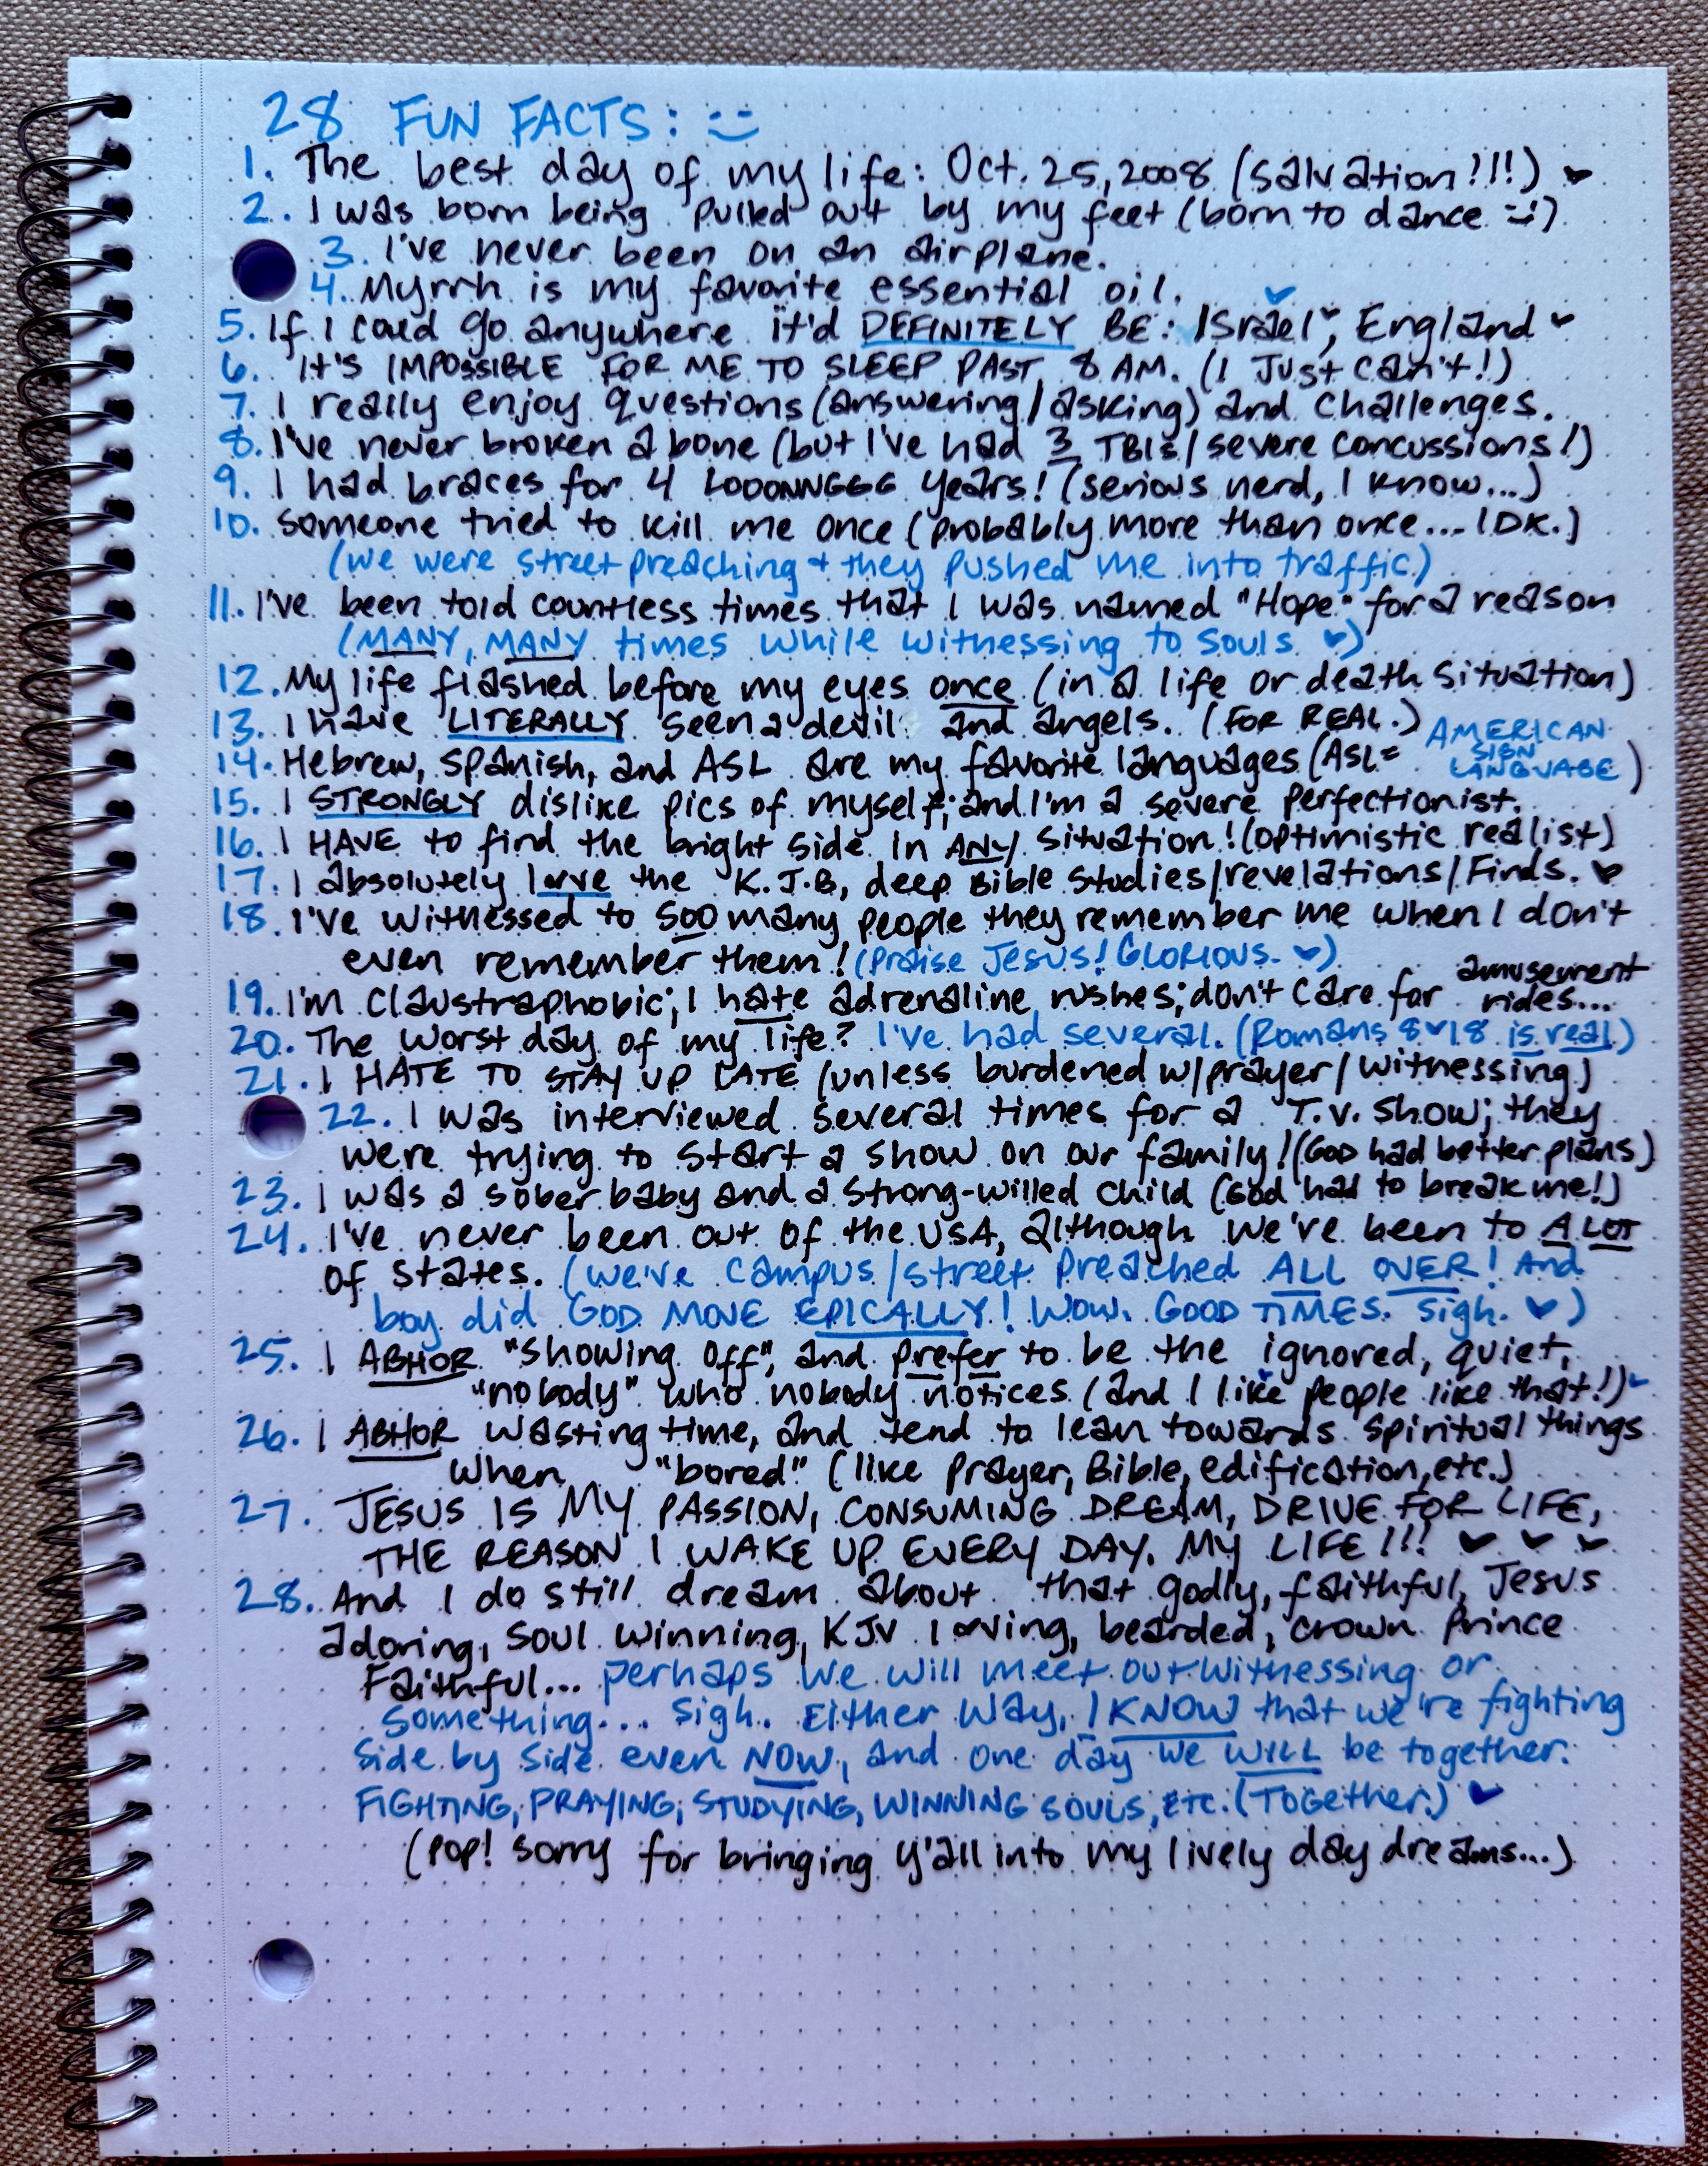 28 FUN FACTS: :)
1. The best day of my life: Oct. 25, 2008 (salvation!!!) ♥
2. I was born being pulled out by my feet (born to dance :))
3. I've never been on an airplane.
4. Myrrh is my favorite essential oil.
5. If I could go anywhere it'd DEFINITELY BE: Israel♥, England ♥
6. It's IMPOSSIBLE FOR ME TO SLEEP PAST 8 AM. (I Just can't!)
7. I really enjoy questions (answering/asking) and challenges.
8. I've never broken a bone (but I've had 3 TBIs/severe concussions!)
9. I had braces for 4 LOOONNGGG years! (serious nerd, I know...)
10. Someone tried to kill me once (probably more than once... IDK.)
(we were street preaching + they pushed me into traffic)
11. I've been told countless times that I was named "Hope" for a reason
(MANY, MANY times while witnessing to souls ♥)
12. My life flashed before my eyes once (in a life or death situation)
13. I have LITERALLY seen a devil and angels. (FOR REAL.)
14. Hebrew, Spanish, and ASL are my favorite languages (ASL= AMERICAN SIGN LANGUAGE)
15. I STRONGLY dislike pics of myself; and I'm a severe perfectionist.
16. I HAVE to find the bright side in ANY situation! (optimistic realist)
17. I absolutely love the K.J.B, deep Bible studies/revelations/Finds. ♥
18. I've witnessed to SOO many people they remember me when I don't
even remember them! (Praise Jesus! GLORIOUS. ♥)
19. I'm claustraphobic; I hate adrenaline rushes; don't care for amusement rides...
20. The worst day of my life? I've had several. (Romans 8♥18 is real)
21. I HATE TO STAY UP LATE (unless burdened w/prayer/witnessing)
22. I was interviewed several times for a T.V. show; they
were trying to start a show on our family! (GOD had better plans)
23. I was a sober baby and a strong-willed child (God had to break me!)
24. I've never been out of the USA, although we've been to A LOT
of states. (we've campus/street preached ALL OVER! And
boy did GOD MOVE EPICALLY! WOW. GOOD TIMES. sigh. ♥)
25. I ABHOR "showing off", and prefer to be the ignored, quiet,
"nobody" who nobody notices (and I like people like that!) ♥
26. I ABHOR wasting time, and tend to lean towards spiritual things
when "bored" (like prayer, Bible, edification, etc.)
27. JESUS IS MY PASSION, CONSUMING DREAM, DRIVE FOR LIFE,
THE REASON I WAKE UP EVERY DAY. MY LIFE!!! ♥ ♥ ♥
28. And I do still dream about that godly, faithful, Jesus
adoring, soul winning, KJV loving, bearded, crown Prince
Faithful... perhaps we will meet out witnessing or
something... sigh. Either way, I KNOW that we're fighting
side by side even NOW, and one day we WILL be together.
FIGHTING, PRAYING, STUDYING, WINNING SOULS, ETC. (Together.) ♥
(pop! sorry for bringing y'all into my lively day dreams...)